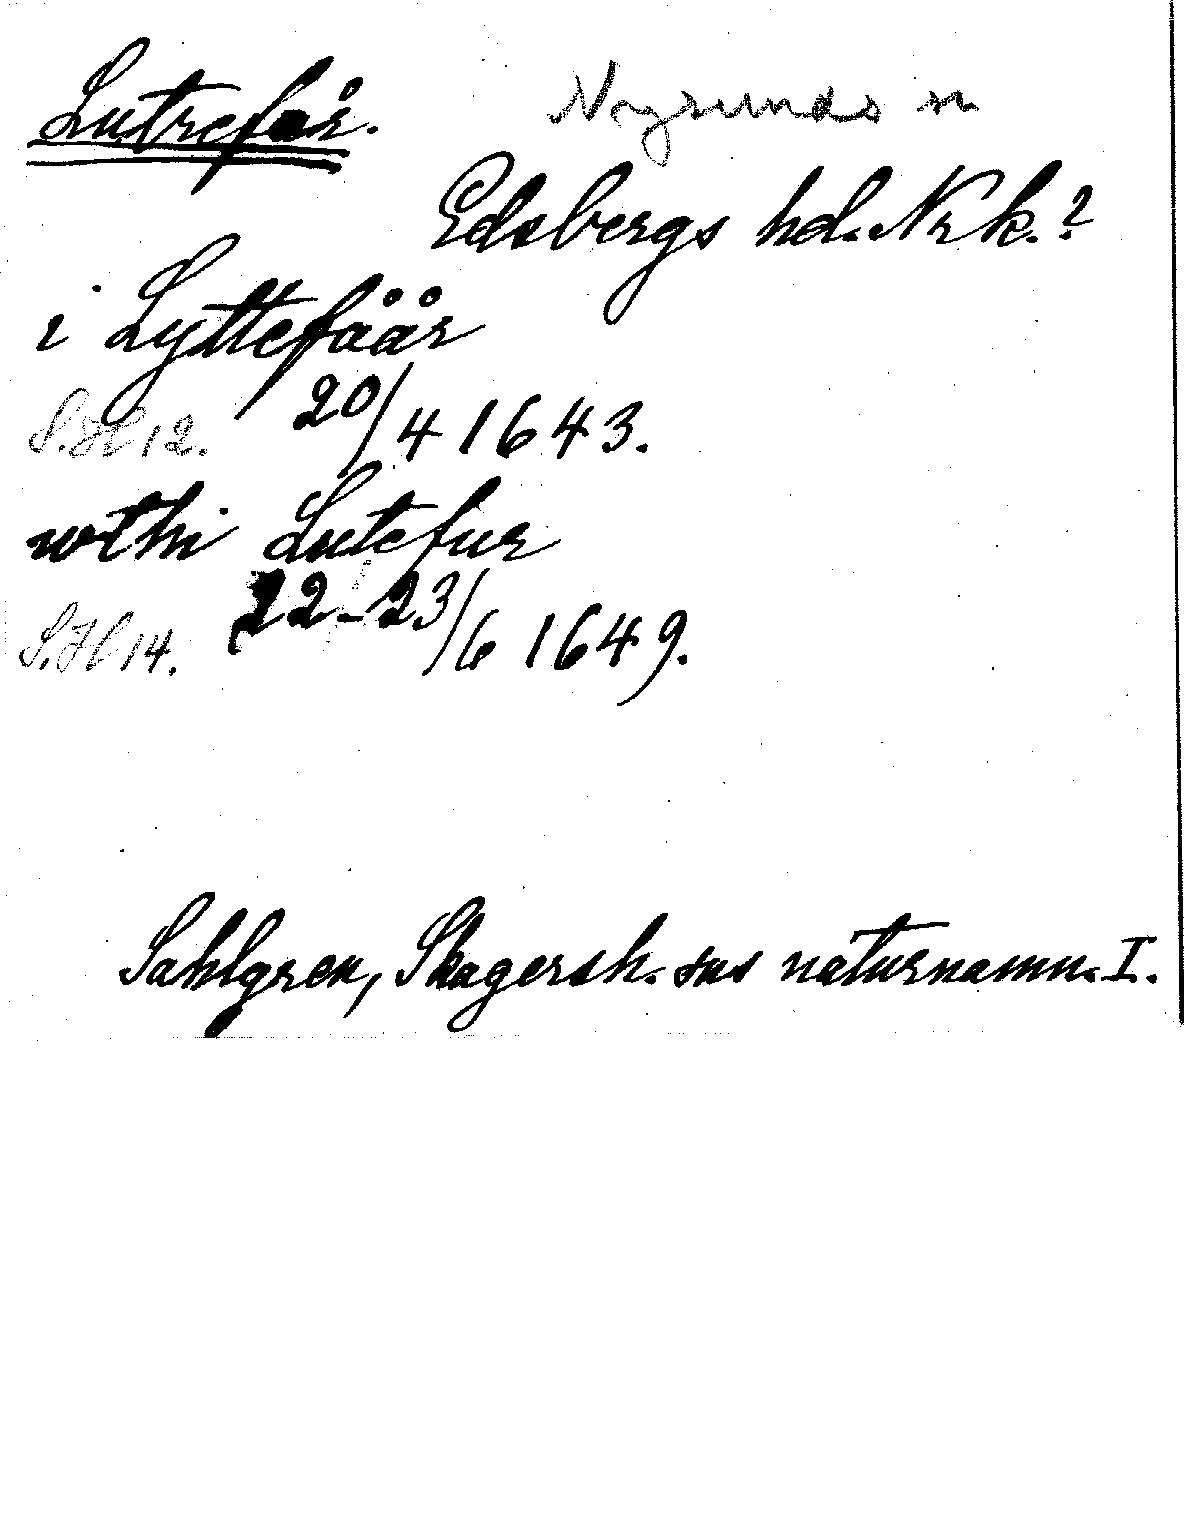 Lutrefår.
Nysunds sn
Edsbergs hd. Nrk.?
i Lyttefåår
S.H 12. 20/4 1643.
wthi Lutefur
S.H 14. 22-23/6 1649.
Sahlgren, Skagersh. sns naturnamn. I.